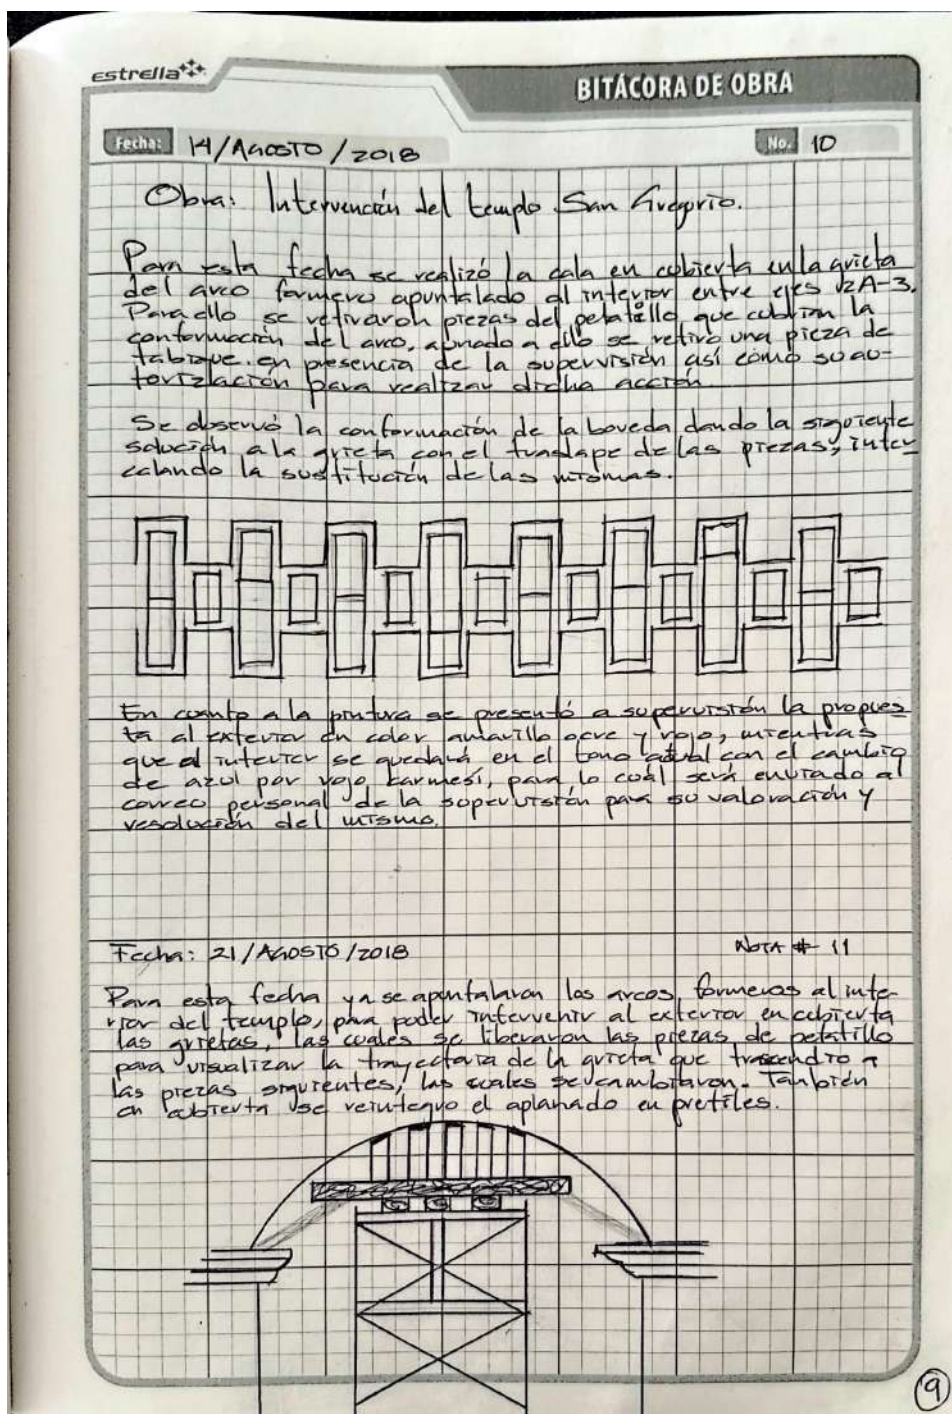 Estrella
BITÁCORA DE OBRA
Fecha: 14/AGOSTO/2018
No. 10
Obra: Intervención del templo San Gregorio.
Para esta fecha se realizó la cala en cubierta en la grieta
del arco formero apuntalado al interior entre ejes 2A-3.
Para ello se retiraron piezas del petatillo que cubrian la
conformación del arco, aunado a ello se retiro una pieza de
tabique. en presencia de la supervisión así como su au-
torización para realizar dicha acción.
Se observó la conformación de la boveda dando la siguiente
solución a la grieta con el traslape de las piezas, inter-
calando la sustitución de las mismas.
En cuanto a la pintura se presentó a supervisión la propues
ta al exterior en color amarillo ocre y rojo, mientras
que al interior se quedará en el tono actual con el cambio
de azul por rojo karmesí, para lo cuál será enviado al
correo personal de la supervisión para su valoración y
resolución del mismo.
Fecha: 21/AGOSTO/2018
NOTA # 11
Para esta fecha ya se apuntalaron los arcos formeros al inte-
rior del templo, para poder intervenir al exterior en cubierta
las grietas, las cuales se liberaron las piezas de petatillo
para visualizar la trayectoria de la grieta que trascendio a
las piezas siguientes, las cuales se cambiaron. También
en cubierta se reintegro el aplanado en pretiles.
9